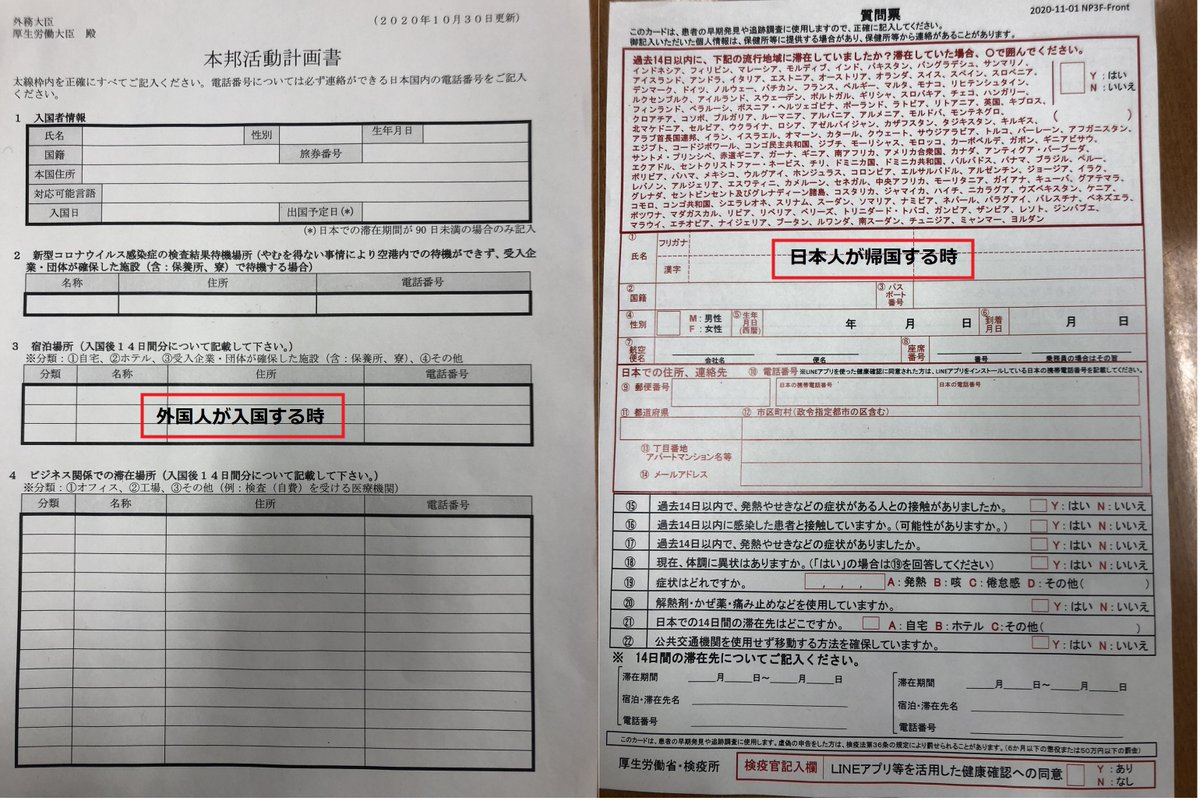 外務大臣
厚生労働大臣 殿
(2020年10月30日更新)
本邦活動計画書
太線枠内を正確にすべてご記入ください。電話番号については必ず連絡ができる日本国内の電話番号をご記入
ください。
1 入国者情報
氏名 性別 生年月日
国籍 旅券番号
本国住所
対応可能言語
入国日 出国予定日(*)
(*)日本での滞在期間が90日未満の場合のみ記入
2 新型コロナウイルス感染症の検査結果待機場所(やむを得ない事情により空港内での待機ができず、受入企
業・団体が確保した施設(含:保養所、寮)で待機する場合)
名称 住所 電話番号
3 宿泊場所(入国後14日間分について記載して下さい。)
※分類:①自宅、②ホテル、③受入企業・団体が確保した施設(含:保養所、寮)、④その他
分類 名称 住所 電話番号
外国人が入国する時
4 ビジネス関係での滞在場所(入国後14日間分について記載して下さい。)
※分類:①オフィス、②工場、③その他(例:検査(自費)を受ける医療機関)
分類 名称 住所 電話番号
質問票
2020-11-01 NP3F-Front
このカードは、患者の早期発見や追跡調査に使用しますので、正確に記入してください。
御記入いただいた個人情報は、保健所等に提供する場合があり、保健所等から連絡があることがあります。
過去14日以内に、下記の流行地域に滞在していましたか?滞在していた場合、○で囲んでください。
インドネシア、フィリピン、マレーシア、モルディブ、インド、パキスタン、バングラデシュ、サンマリノ、
アイスランド、アンドラ、イタリア、エストニア、オーストリア、オランダ、スイス、スペイン、スロベニア、
デンマーク、ドイツ、ノルウェー、バチカン、フランス、ベルギー、マルタ、モナコ、リヒテンシュタイン、
ルクセンブルク、アイルランド、スウェーデン、ポルトガル、ギリシャ、スロバキア、チェコ、ハンガリー、
フィンランド、ベラルーシ、ボスニア・ヘルツェゴビナ、ポーランド、ラトビア、リトアニア、英国、キプロス、
クロアチア、コソボ、ブルガリア、ルーマニア、アルバニア、アルメニア、モルドバ、モンテネグロ、
北マケドニア、セルビア、ウクライナ、ロシア、アゼルバイジャン、カザフスタン、タジキスタン、キルギス、
アラブ首長国連邦、イラン、イスラエル、オマーン、カタール、クウェート、サウジアラビア、トルコ、バーレーン、アフガニスタン、
エジプト、コートジボワール、コンゴ民主共和国、ジブチ、モーリシャス、モロッコ、カーボベルデ、ガボン、ギニアビサウ、
サントメ・プリンシペ、赤道ギニア、ガーナ、ギニア、南アフリカ、アメリカ合衆国、カナダ、アンティグア・バーブーダ、
エクアドル、セントクリストファー・ネービス、チリ、ドミニカ国、ドミニカ共和国、バルバドス、パナマ、ブラジル、ペルー、
ボリビア、バハマ、メキシコ、ウルグアイ、ホンジュラス、コロンビア、エルサルバドル、アルゼンチン、ジョージア、イラク、
レバノン、アルジェリア、エスワティニ、カメルーン、セネガル、中央アフリカ、モーリタニア、ガイアナ、キューバ、グアテマラ、
グレナダ、セントビンセント及びグレナディーン諸島、コスタリカ、ジャマイカ、ハイチ、ニカラグア、ウズベキスタン、ケニア、
コモロ、コンゴ共和国、シエラレオネ、スリナム、スーダン、ソマリア、ナミビア、ネパール、パラグアイ、パレスチナ、ベネズエラ、
ボツワナ、マダガスカル、リビア、リベリア、ベリーズ、トリニダード・トバゴ、ガンビア、ザンビア、レソト、ジンバブエ、
マラウイ、エチオピア、ナイジェリア、ブータン、ルワンダ、南スーダン、チュニジア、ミャンマー、ヨルダン
Y:はい
N:いいえ
( )
① 氏名 フリガナ
漢字
日本人が帰国する時
② 国籍 ③ パスポート番号
④ 性別 M:男性 F:女性 ⑤ 生年月日(西暦) 年 月 日 ⑥ 到着月日 月 日
⑦ 航空便名 会社名 便名 ⑧ 座席番号 番号 乗務員の場合はその旨
日本での住所、連絡先 ⑩ 電話番号 ※LINEアプリを使った健康確認に同意された方は、LINEアプリをインストールしている日本の携帯電話番号を記載してください。
⑨ 郵便番号 日本の携帯電話番号 日本の電話番号
⑪ 都道府県 ⑫ 市区町村(政令指定都市の区含む)
⑬ 丁目番地
アパートマンション名等
⑭ メールアドレス
⑮ 過去14日以内で、発熱やせきなどの症状がある人との接触がありましたか。 Y:はい N:いいえ
⑯ 過去14日以内に感染した患者と接触していますか。(可能性がありますか。) Y:はい N:いいえ
⑰ 過去14日以内で、発熱やせきなどの症状がありましたか。 Y:はい N:いいえ
⑱ 現在、体調に異状はありますか。(「はい」の場合は⑲を回答してください) Y:はい N:いいえ
⑲ 症状はどれですか。 , , , A:発熱 B:咳 C:倦怠感 D:その他( )
⑳ 解熱剤・かぜ薬・痛み止めなどを使用していますか。 Y:はい N:いいえ
㉑ 日本での14日間の滞在先はどこですか。 A:自宅 B:ホテル C:その他( )
㉒ 公共交通機関を使用せず移動する方法を確保していますか。 Y:はい N:いいえ
※ 14日間の滞在先についてご記入ください。
滞在期間 月 日~ 月 日 滞在期間 月 日~ 月 日
宿泊・滞在先名 宿泊・滞在先名
電話番号 電話番号
このカードは、患者の早期発見や追跡調査に使用します。虚偽の申告をした方は、検疫法第36条の規定により罰せられることがあります。(6か月以下の懲役または50万円以下の罰金)
厚生労働省・検疫所 検疫官記入欄 LINEアプリ等を活用した健康確認への同意 Y:あり
N:なし